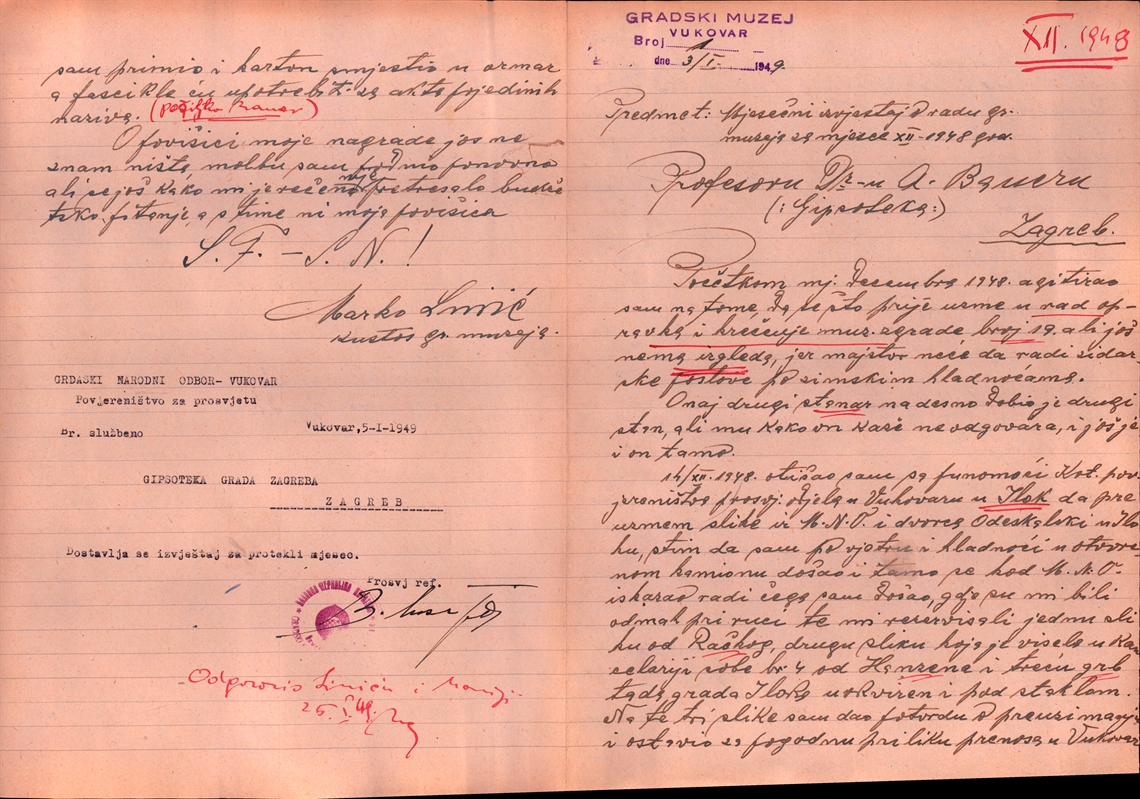 sam primio i karton smjestio u ormar
a fascikle ću upotrebit za akta pojedinih
naziva.
O povišici moje nagrade još ne
znam ništa molbu sam podnio ponovno
ali se još kako mi je rečeno nije pretresalo budže
tsko pitanje, a s time ni moja povišica
S. F. – S. N.!
Marko Linić
kustos gr. muzeja.
GRDASKI NARODNI ODBOR- VUKOVAR
Povjereništvo za prosvjetu
Br. službeno
Vukovar,5-I-1949
GIPSOTEKA GRADA ZAGREBA
Z A G R E B
Dostavlja se izvještaj za protekli mjesec.
Prosvj ref.
Odgovoris Liniću i
25. I. 49.
GRADSKI MUZEJ
VUKOVAR
Broj 1
dne 3/I. 1949.
XII. 1948
Predmet: Mjesečni izvještaj o radu gr.
muzeja za mjesec XII - 1948 god.
Profesoru Dr-u A. Baueru
(: Gipsoteka :)
Zagreb.
Početkom mj. Decembra 1948. agitirao
sam na tome, da se što prije uzme u rad op-
ravka i krečenje muz. zgrade broj 19. ali još
nema izgleda, jer majstor neće da radi zidar-
ske poslove po zimskim hladnoćama.
Onaj drugi stanar nadesno dobio je drugi
stan, ali mu kako on kaže neodgovara, i još je
i on tamo.
14/XII. 1948. otišao sam sa punomoći Kot. pov
jereništva prosvj. odjela u Vukovaru u Ilok da pre
uzmem slike iz M.N.O. i dvorca Odeskalski u Ilo
ku, s tim da sam po vjetru i hladnoći u otvore
nom kamionu došao i tamo se kod M.N.O.
iskazao radi čega sam došao, gdje su mi bili
odmah pri ruci te mi rezervisali jednu sli
ku od Račkog, drugu sliku koja je visela u Kan
celariji sobe br. 4 od Hanzena i treću grb
tada grada Iloka uokvireni pod staklom.
Na te tri slike sam dao potvrdu o preuzimanju
i ostavio za pogodnu priliku prenosa u Vukovar